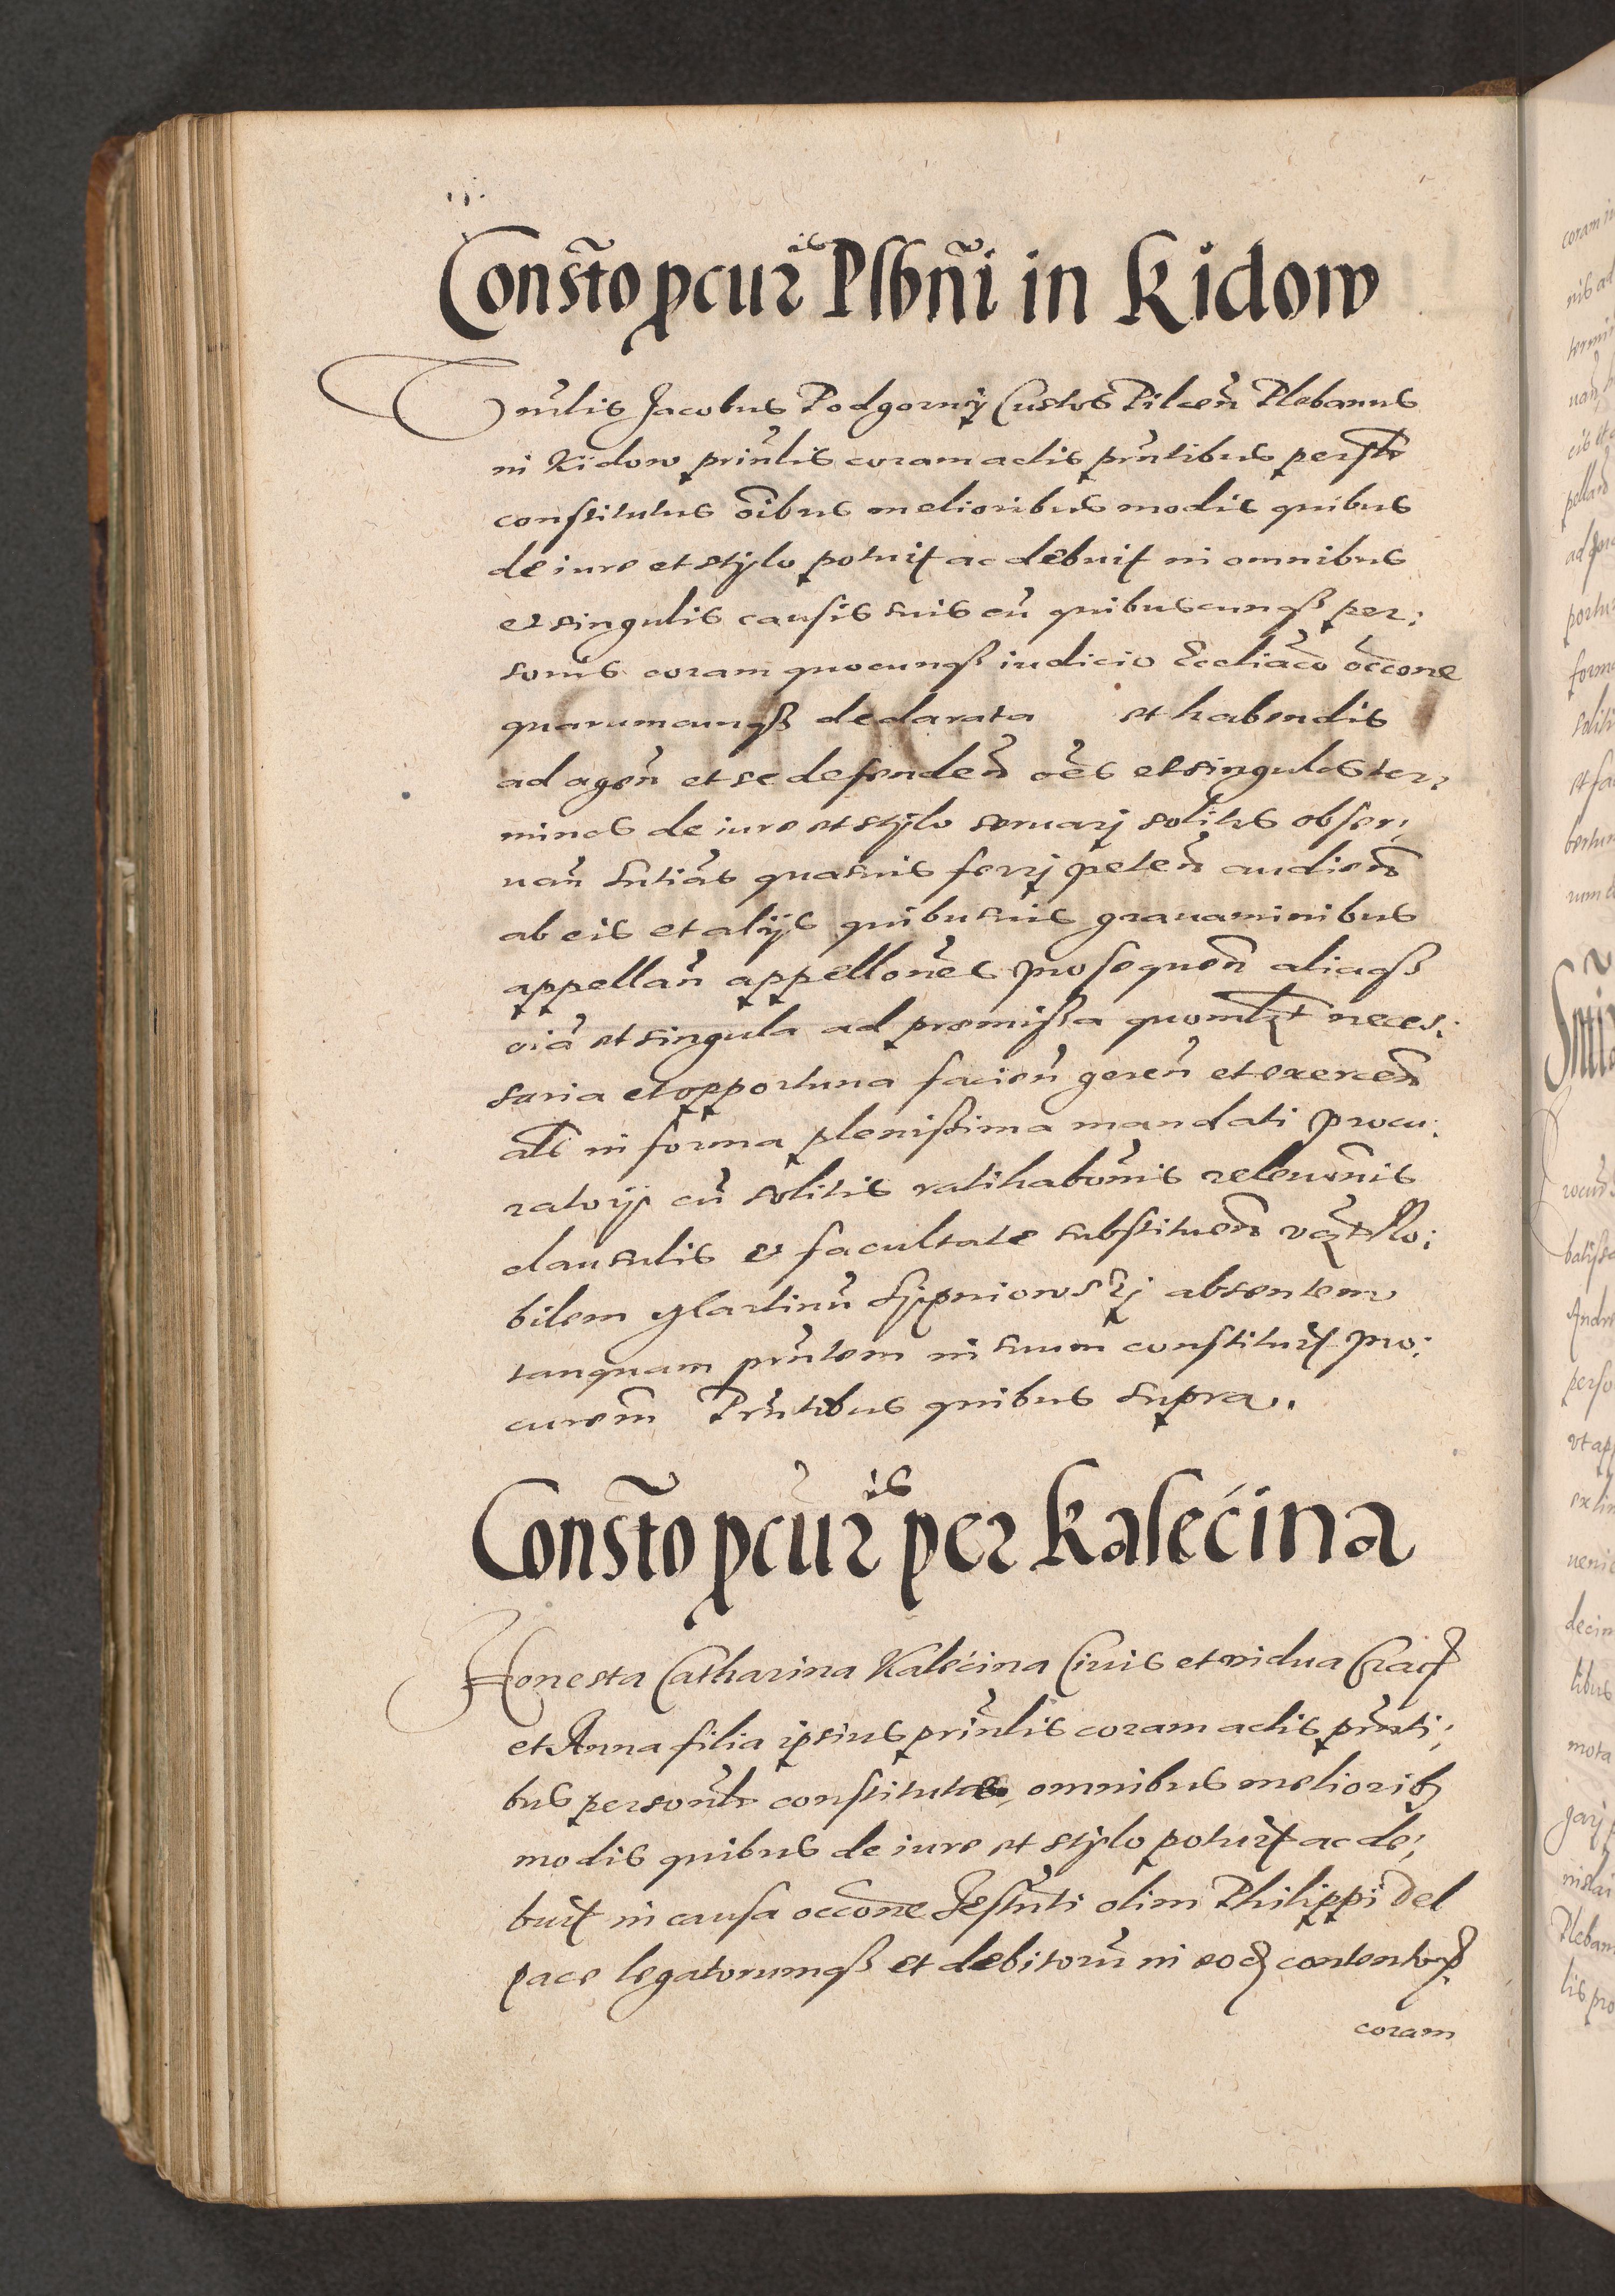 Consto͂ pcur͂is Plbn͂i in Kidow
Dnu͂lis Jacobus Podgorny Custos Pilcen͂ Plebanus
in Kidow prin͂lis coram actis prn͂tibus persl͂r
constitutus o͂ibus melioribus modis quibus
de iure et stylo potuit ac debuit in omnibus
et singulis causis suis cu͂ quibuscunqȝ per:
sonis coram quocunqȝ iudicio Eccliac͂o occ͂one
quarumcunqȝ declarata et habendis
ad agen͂ et se defenden͂ oe͂s et singulos ter:
minos de iure et stylo seruarj solitos obser:
uan͂ sn͂tias quasuis ferrj peten͂ audien͂
ab eis et alijs quibusuis grauaminibus
appellan͂ appello͂nes prosequen͂ aliaqȝ
oi͂a et singula ad premissa quomlt͂ neces:
saria et opportuna facien͂ geren͂ et exercen͂
al͂s in forma plenissima mandati procu:
ratorij cu͂ solitis ratihabo͂nis releuo͂nis
clausulis et facultate substituen͂ vqȝ No:
bilem Martinu͂ Sypniowskj absentem
tanquam prn͂tem in suum constituit pro:
curem͂ Prn͂tibus quibus supra.
Consto͂ pcur͂is per Kalećina
Honesta Catharina Kalećina Ciuis et vidua Crac͂
et Anna filia ipsius prin͂lis coram actis prn͂ti:
bus person͂lr constitutae, omnibus melioribȝ
modis quibus de iure et stylo potuit ac de:
buit in causa occ͂one Testn͂ti olim Philippi Del
pace legatorumqȝ et debitoru͂ in eod͂ contentorꝝ
coram